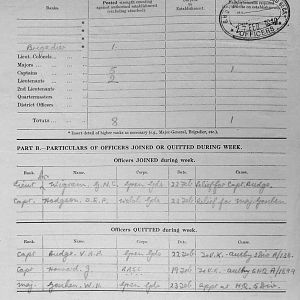 Posted strength counting
against authorised establishment
(excluding attached)
Establishment.
OFFICERS
Brigadier 1
Lieut. Colonels
Majors
Captains 5 1
Lieutenants 2
2nd Lieutenants
Quartermasters
District Officers
Totals 8 1
* Insert detail of higher ranks as necessary (e.g., Major-General, Brigadier, etc.)
PART B.—PARTICULARS OF OFFICERS JOINED OR QUITTED DURING WEEK.
Officers JOINED during week.
Rank. Name. Corps. Date.
Lieut Wigram G.N.C. Gren Gds 22 Feb Relief for Capt Budge.
Capt. Hodgson D.E.P. Welsh Gds 22 Feb Relief for Maj
Officers QUITTED during week.
Rank. Name. Corps. Date.
Capt Budge. V.A.P Gren Gds 22 Feb To U.K. - auth
Capt Howard. J. RASC 19 Feb To U.K. - auth GHQ
Maj. W.H. Gren Gds 22 Feb Appt at HQ